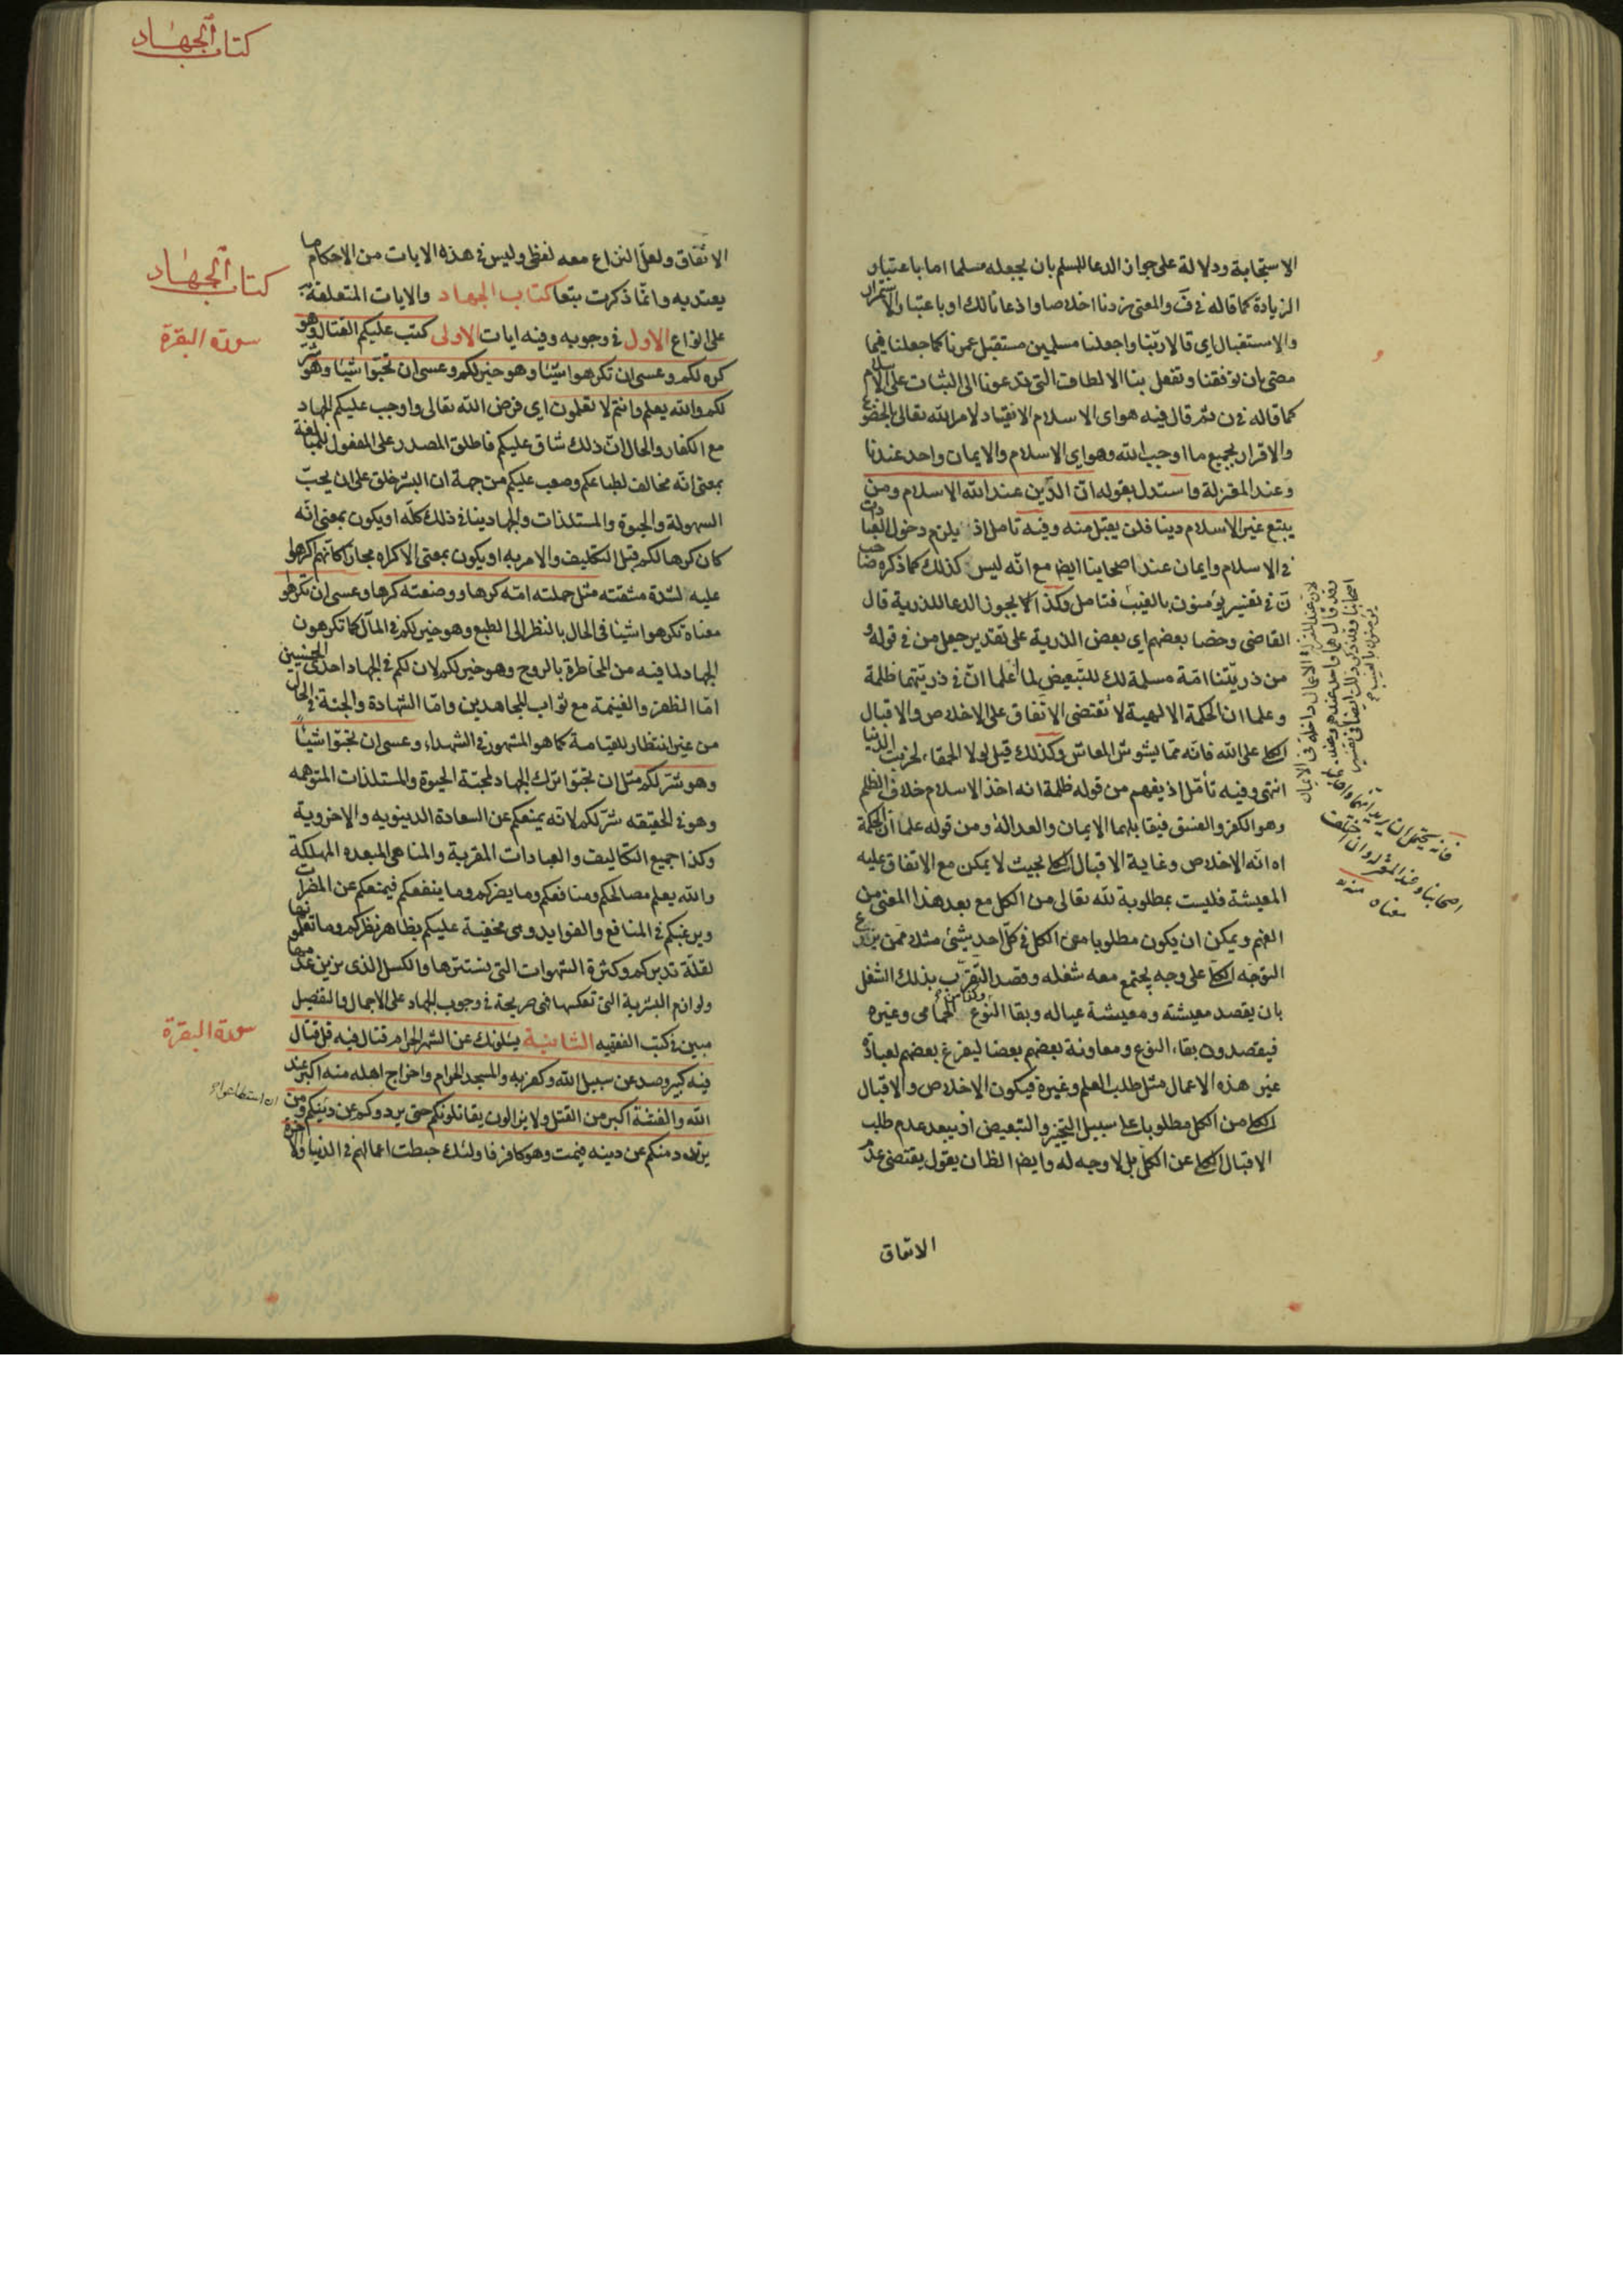 الاستجابة ودلالة على جواز الدعا للمسلم بان يجعله مسلما اما باعتبار
الزيادة كما قاله في ف والمعنى زدنا اخلاصا واذعانا لك او باعتبار الاستمرار
والاستقبال اي قالا ربّنا واجعلنا مسلمين مستقبل عمرنا كما جعلنا فيما
مضى بان توفقنا وتفعل بنا الالطاف التي تدعونا الى الثبات على الاسلام
كما قاله في ن ثم قال فيه هو اي الاسلام الانقياد لامر الله تعالى بالخضوع
والاقرار بجميع ما اوجب الله وهو اي الاسلام والايمان واحد عندنا
وعند المعتزلة واستدل بقوله انّ الدّين عند الله الاسلام ومن
يبتغ غير الاسلام دينا فلن يقبل منه وفيه تامل اذ يلزم دخول العبادات
في الاسلام وايمان عند اصحابنا ايضا مع انّه ليس كذلك كما ذكره صاحب
ن في تفسير يؤمنون بالغيب فتامل وكذا لا يجوز الدعا للذرية قال
القاضي وخصا بعضهم اي بعض الذرية على تقدير جعل من في قوله و
من ذريّتنا امّة مسلمة لك للتبعيض لما اعلما انّ في ذريتهما ظلمة
وعلما ان الحكمة الالهية لا تقتضي الاتّفاق على الاخلاص والاقبال
الكلي على الله فانّه ممّا يشوش المعاش وكذلك قيل لولا الحمقاء لخربت الدنيا
انتهى وفيه تأمّل اذ يفهم من قوله ظلمة انه اخذ الاسلام خلاف الظلم
وهو الكفر والفسق فيقابلهما الايمان والعدالة ومن قوله علما ان الحكمة
اه انّه الاخلاص وغاية الاقبال الكلي بحيث لا يمكن مع الاتفاق عليه
المعيشة فليست بمطلوبة لله تعالى من الكل مع بعد هذا المعنى من
الفهم ويمكن ان يكون مطلوبا من الكل في كلّ احد بشيء مثلا ممن يزرع
التوجّه الكلي على وجه يجتمع معه شغله وقصد التقرّب بذلك الشغل
بان يقصد معيشته ومعيشة عياله وبقا النوع وكذا من الحمامي وغيره
فيقصدون بقاء النوع ومعاونة بعضهم بعضا ليفرغ بعضهم لعبادة
غير هذه الاعمال مثل طلب العلم وغيره فيكون الاخلاص والاقبال
الكلي من الكل مطلوبا على سبيل التخيير والتبعيض اذ يبعد عدم طلب
الاقبال الكلي عن الكل بل لا وجه له وايضا الظ ان يقول يقتضي عدم
الاتفاق
لان عند المعتزلة الاعمال داخلة في الايمان
وقد قال هما واحد عندهم وعند
اصحابنا وقد ذكر ذلك ايضا في تفسير
يؤمنون بالغيب
فانه يحتمل ان يريد انهما واحد عند
اصحابنا وعند المعتزلة وان اختلف
معناه منه
كتاب الجهاد
الاتّفاق ولعلّ النزاع معه لفظي وليس في هذه الايات من الاحكام ما
يعتد به وانّما ذكرت تبعا كتاب الجهاد والايات المتعلقة به
على انواع الاول في وجوبه وفيه ايات الاولى كتب عليكم القتال وهو
كره لكم وعسى ان تكرهوا شيئا وهو خير لكم وعسى ان تحبّوا شيئا وهو شرّ
لكم والله يعلم وانتم لا تعلمون اي فرض الله تعالى واوجب عليكم الجهاد
مع الكفار والحال انّ ذلك شاق عليكم فاطلق المصدر على المفعول للمبالغة
بمعنى انّه مخالف لطباعكم وصعب عليكم من جهة ان البشر خلق على ان يحبّ
السهولة والحيوة والمستلذات والجهاد ينافي ذلك كلّه او يكون بمعنى انّه
كان كرها لكم قبل التكليف والامر به او يكون بمعنى الاكراه مجازا كانّهم اكرهوا
عليه لشدة مشقته مثل حملته امّه كرها ووضعته كرها وعسى ان تكرهوا
معناه تكرهوا شيئا في الحال بالنظر الى الطبع وهو خير لكم في المآل كما تكرهون
الجهاد لما فيه من المخاطرة بالروح وهو خير لكم لان لكم في الجهاد احدى الحسنيين
امّا الظفر والغنيمة مع ثواب المجاهدين وامّا الشهادة والجنة في الحال
من غير انتظار للقيامة كما هو المشهور في الشهداء وعسى ان تحبّوا شيئا
وهو شرّ لكم مثل ان تحبّوا ترك الجهاد لمحبّة الحيوة والمستلذات المتوهمه
وهو في الحقيقه شرّ لكم لانه يمنعكم عن السعادة الدينويه والاخروية
وكذا جميع التكاليف والعبادات المقربة والمناهي المبعده المهلكة
والله يعلم مصالحكم ومنافعكم وما يضركم وما ينفعكم فيمنعكم عن المضرات
ويرغبكم في المنافع والفوايد وهي مخفية عليكم بظاهر نظركم وما تعلمونها
لقلّة تدبركم وكثرة الشهوات التي يسترها والكسل الذي يزين عدمها
ولوازم البشرية التي تعكسها فهي صريحة في وجوب الجهاد على الاجمال والتفصيل
مبين في كتب الفقهيه الثانية يسئلونك عن الشهر الحرام قتال فيه قل قتال
فيه كبير وصد عن سبيل الله وكفر به والمسجد الحرام واخراج اهله منه اكبر عند
الله والفتنة اكبر من القتل ولا يزالون يقاتلونكم حتى يردوكم عن دينكم ومن
يرتدد منكم عن دينه فيمت وهو كافر فاولئك حبطت اعمالهم في الدنيا والاخرة
كتاب الجهاد
سورة البقرة
سورة البقرة
ان استطاعوا